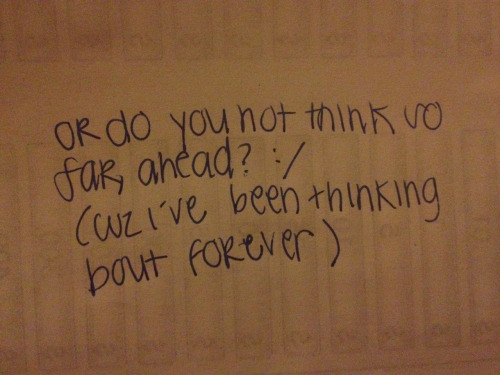 OR do you not think so
far, ahead? :/
(cuz i've been thinking
bout forever)